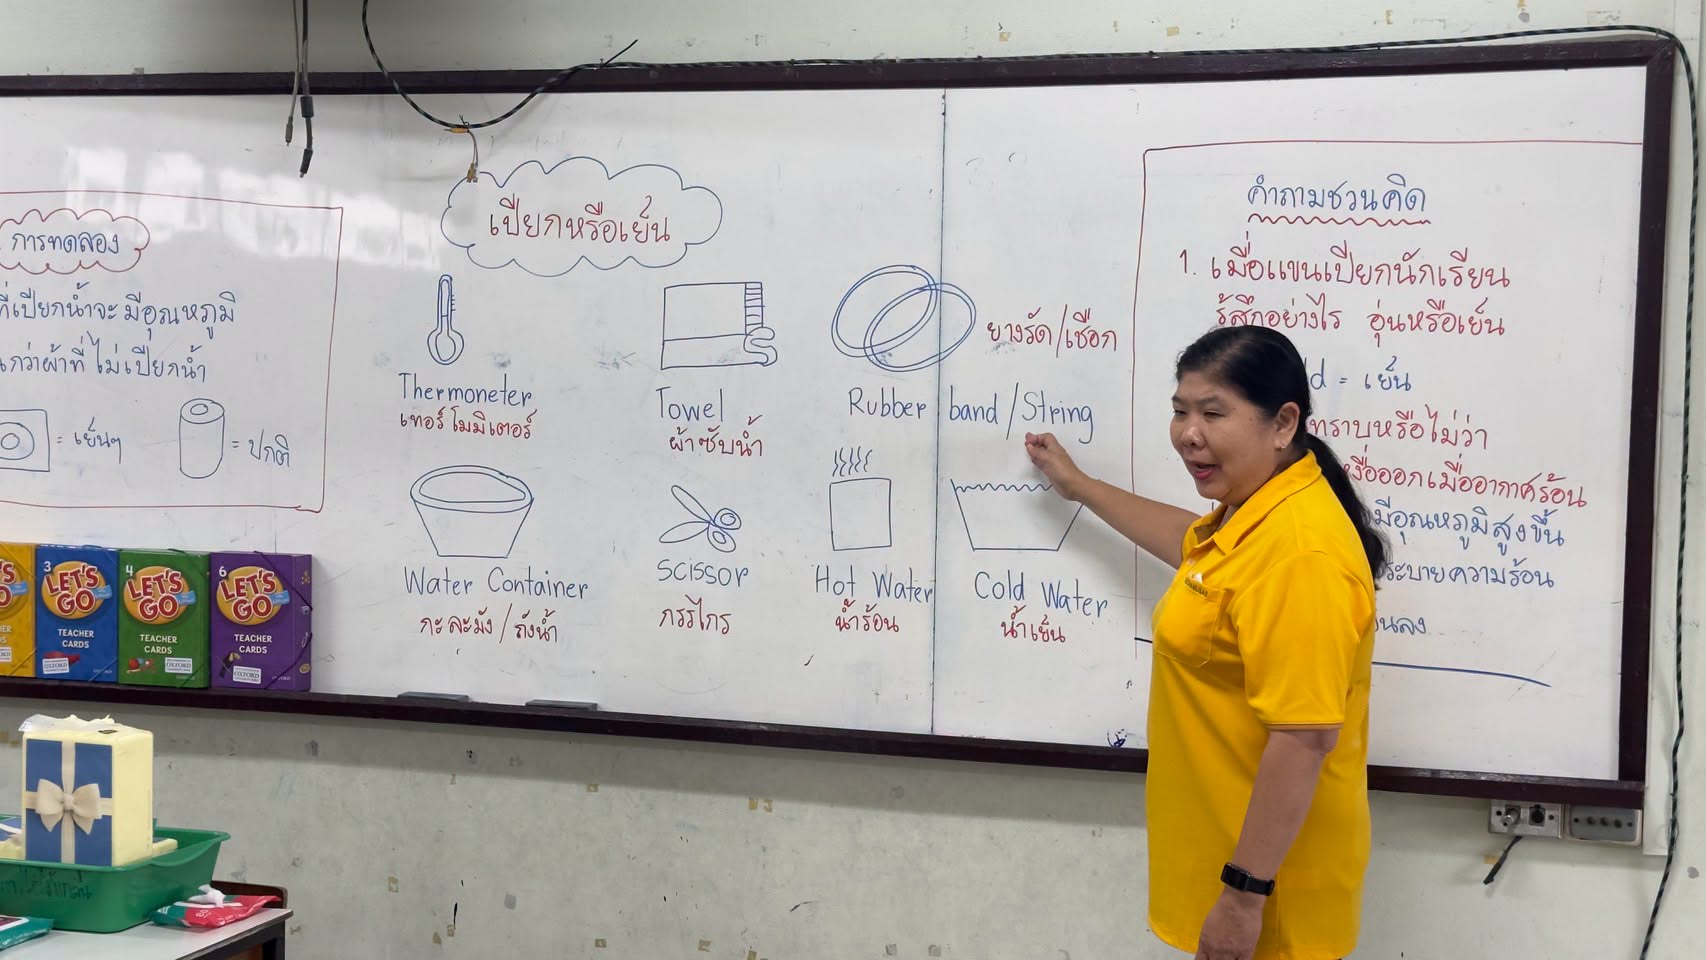 การทดลอง
ที่เปียกน้ำจะมีอุณหภูมิ
กว่าผ้าที่ไม่เปียกน้ำ
= เย็นๆ
= ปกติ
เปียกหรือเย็น
Thermoneter
เทอร์โมมิเตอร์
Towel
ผ้าซับน้ำ
Rubber band/String
ยางรัด/เชือก
Water Container
กะละมัง/ถังน้ำ
SCISSOr
กรรไกร
Hot Water
น้ำร้อน
Cold Water
น้ำเย็น
คำถามชวนคิด
1. เมื่อแขนเปียกนักเรียน
รู้สึกอย่างไร อุ่นหรือเย็น
= เย็น
ทราบหรือไม่ว่า
เหงื่อออกเมื่ออากาศร้อน
มีอุณหภูมิสูงขึ้น
ระบายความร้อน
3
LET'S
GO
TEACHER
CARDS
OXFORD
4
LET'S
GO
TEACHER
CARDS
OXFORD
6
LET'S
GO
TEACHER
CARDS
OXFORD